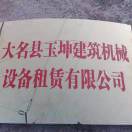 大名县玉坤建筑机械
设备租赁有限公司